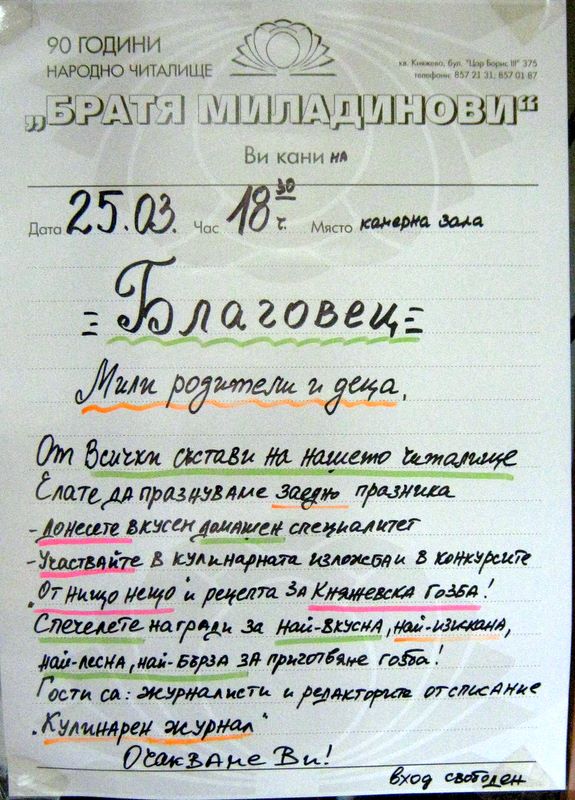 90 ГОДИНИ
НАРОДНО ЧИТАЛИЩЕ
кв. Княжево, бул. "Цар Борис III" 375
телефони: 857 21 31, 857 01 87
„БРАТЯ МИЛАДИНОВИ“
Ви кани на
Дата 25.03. Час 18 30 ч. Място камерна зала
= Благовец =
Мили родители и деца,
От всички състави на нашето читалище
Елате да празнуваме заедно празника
- Донесете вкусен домашен специалитет
- Участвайте в кулинарната изложба и в конкурсите
"От нищо нещо" и рецепта за Княжевска гозба!
Спечелете награди за най-вкусна, най-изискана,
най-лесна, най-бърза за приготвяне гозба!
Гости са: журналисти и редакторите от списание
„Кулинарен журнал"
Очакваме Ви!
вход свободен